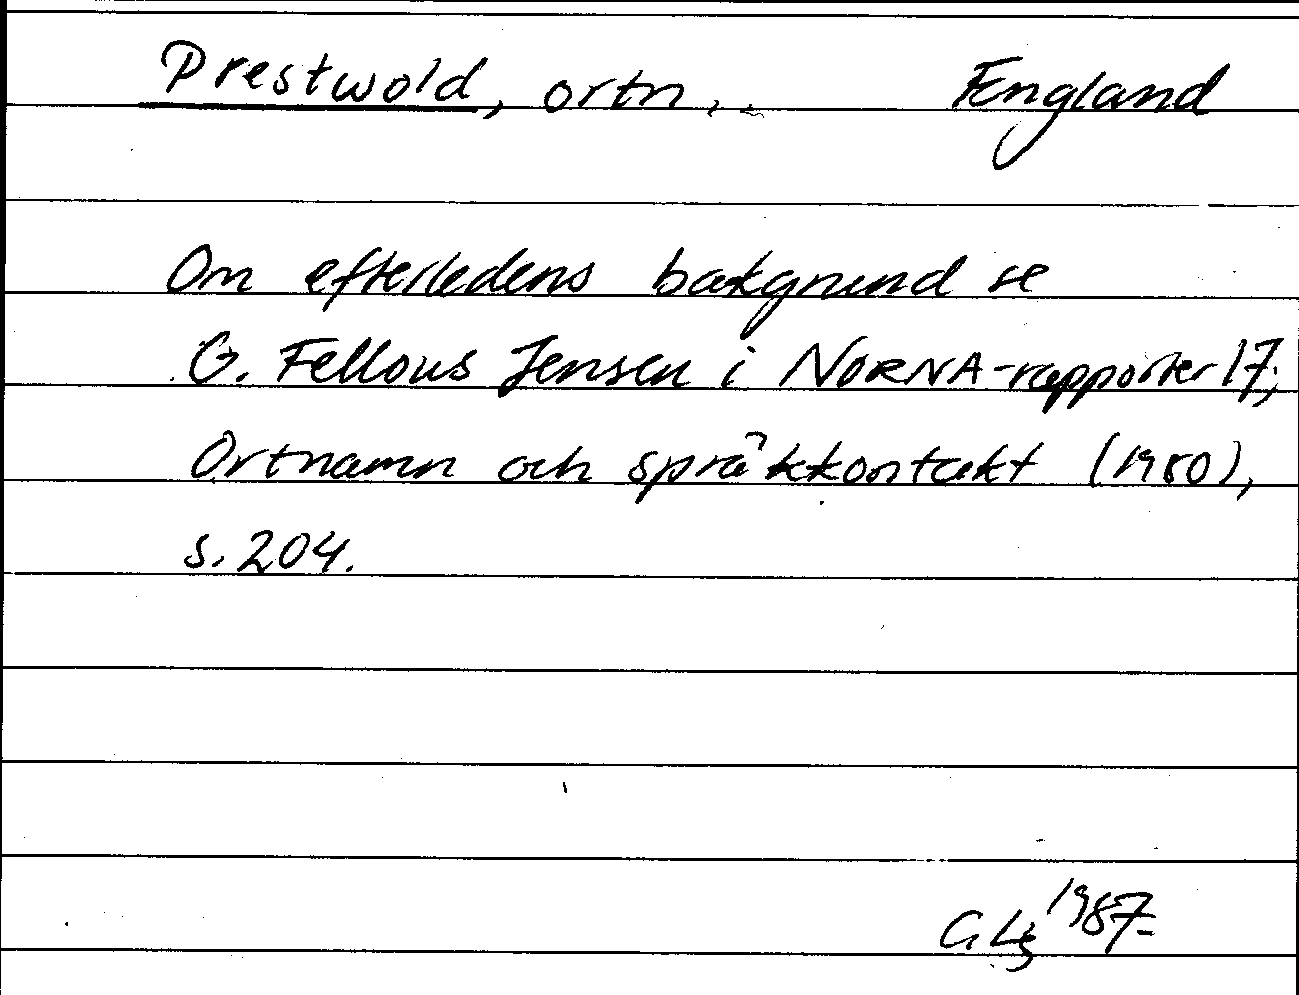 Prestwold, ortn., England
Om efterledens bakgrund se
G. Fellows Jensen i NORNA-rapporter 17;
Ortnamn och språkkontakt (1980),
s. 204.
1987